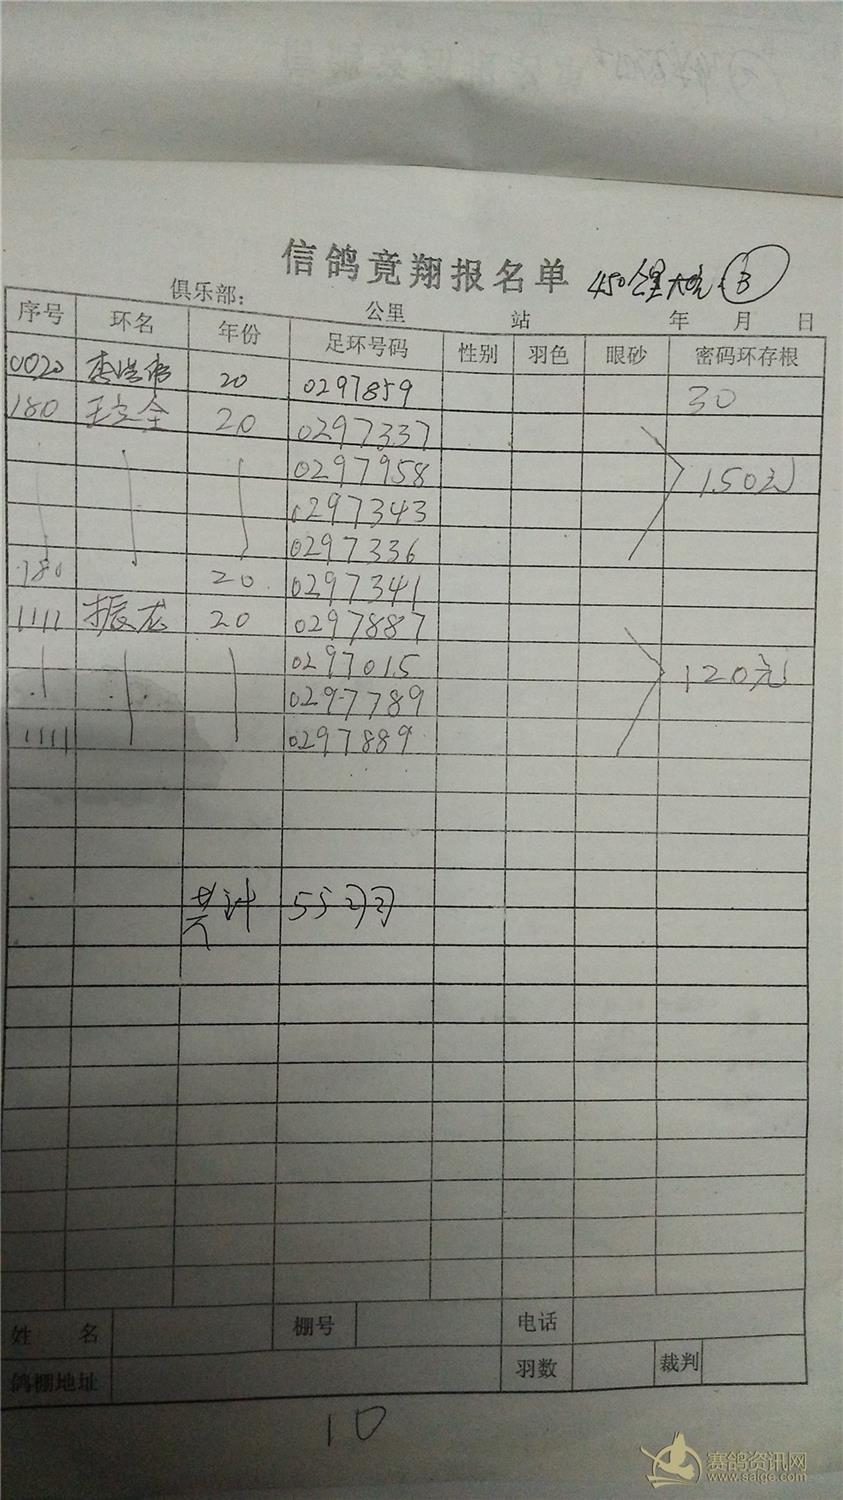 信鸽竟翔报名单 450公里大 B
俱乐部: 公里 站 年 月 日
序号 环名 年份 足环号码 性别 羽色 眼砂 密码环存根
0020 20 0297859 30
180 王立全 20 0297337
0297958 150元
0297343
0297336
180 20 0297341
1111 振龙 20 0297887
0297015 120元
0297789
1111 0297889
共计 55羽
姓 名 棚号 电话
鸽棚地址 羽数 裁判
10
赛鸽资讯网
www.saige.com